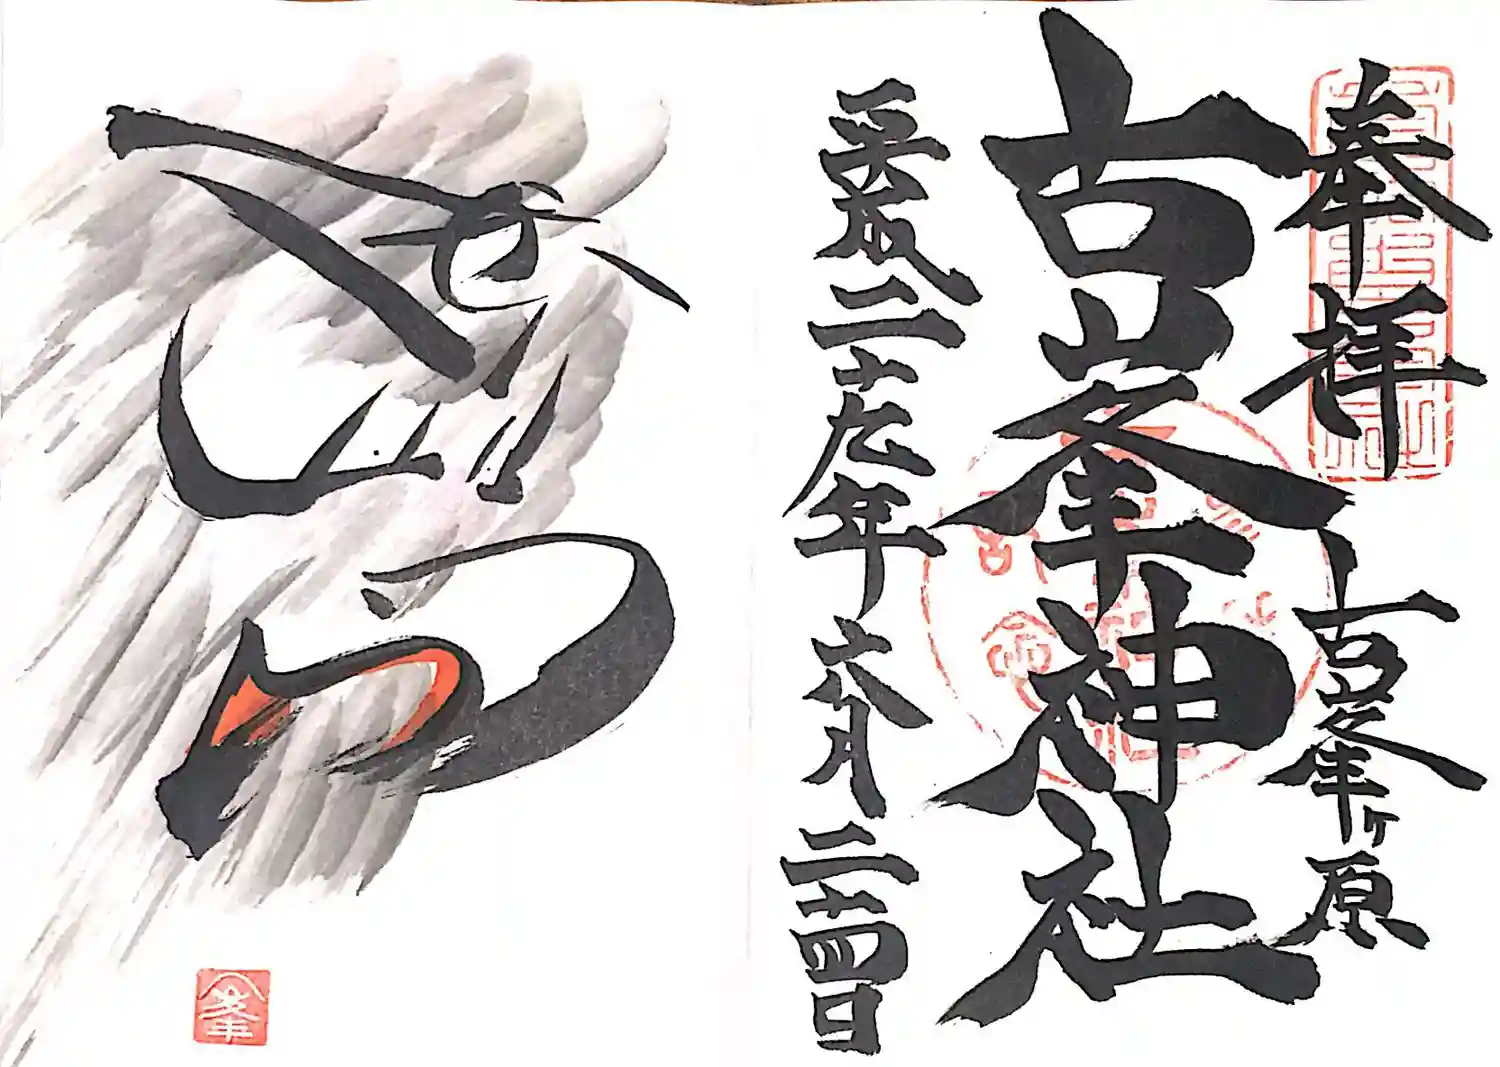 奉拝
古峯ヶ原
古峯神社
平成二十九年六月二十四日